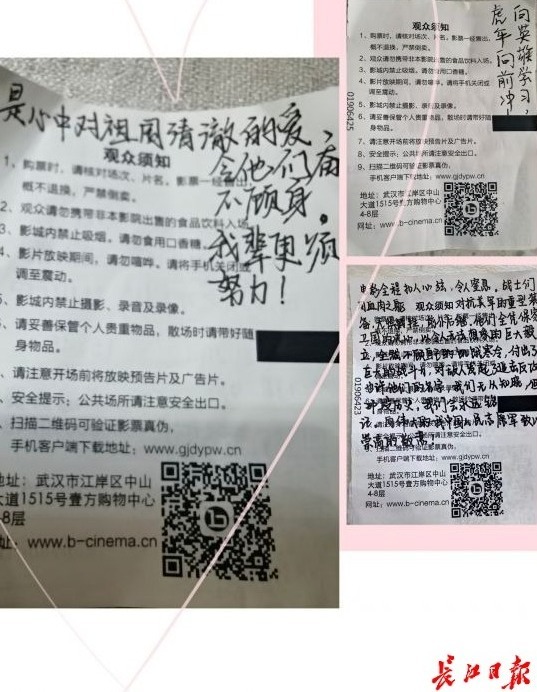 是心中对祖国清澈的爱，
令他们奋
不顾身。
我辈更须
努力！
观众须知
1、购票时，请核对场次、片名，影票一经售出，
概不退换，严禁倒卖。
2、观众请勿携带非本影院出售的食品饮料入场。
3、影城内禁止吸烟。请勿食用口香糖。
4、影片放映期间，请勿喧哗。请将手机关闭或
调至震动。
5、影城内禁止摄影、录音及录像。
6、请妥善保管个人贵重物品，散场时请带好随
身物品。
7、请注意开场前将放映预告片及广告片。
8、安全提示：公共场所请注意安全出口。
9、扫描二维码可验证影票真伪，
手机客户端下载地址：www.gjdypw.cn
地址：武汉市江岸区中山
大道1515号壹方购物中心
4-8层
网址：www.b-cinema.cn
向英雄学习，
虎年向前冲！
观众须知
1、购票时，请核对场次、片名，影票一经售出，
概不退换，严禁倒卖。
2、观众请勿携带非本影院出售的食品饮料入场。
3、影城内禁止吸烟。请勿食用口香糖。
4、影片放映期间，请勿喧哗。请将手机关闭或
调至震动。
5、影城内禁止摄影、录音及录像。
6、请妥善保管个人贵重物品，散场时请带好随
身物品。
7、请注意开场前将放映预告片及广告片。
8、安全提示：公共场所请注意安全出口。
9、扫描二维码可验证影票真伪，
手机客户端下载地址：www.gjdypw.cn
地址：武汉市江岸区中山
大道1515号壹方购物中心
4-8层
网址：www.b-cinema.cn
01906425
电影全程扣人心弦，令人窒息。战士们
血肉之躯 观众须知 对抗美军的重型装
备
卫国
立
巨大的
我们无从知晓，但
我们会永远铭
记。向伟大的中国人民志愿军致以
崇高的敬意。
手机客户端下载地址：www.gjdypw.cn
地址：武汉市江岸区中山
大道1515号壹方购物中心
4-8层
网址：www.b-cinema.cn
01906423
长江日报